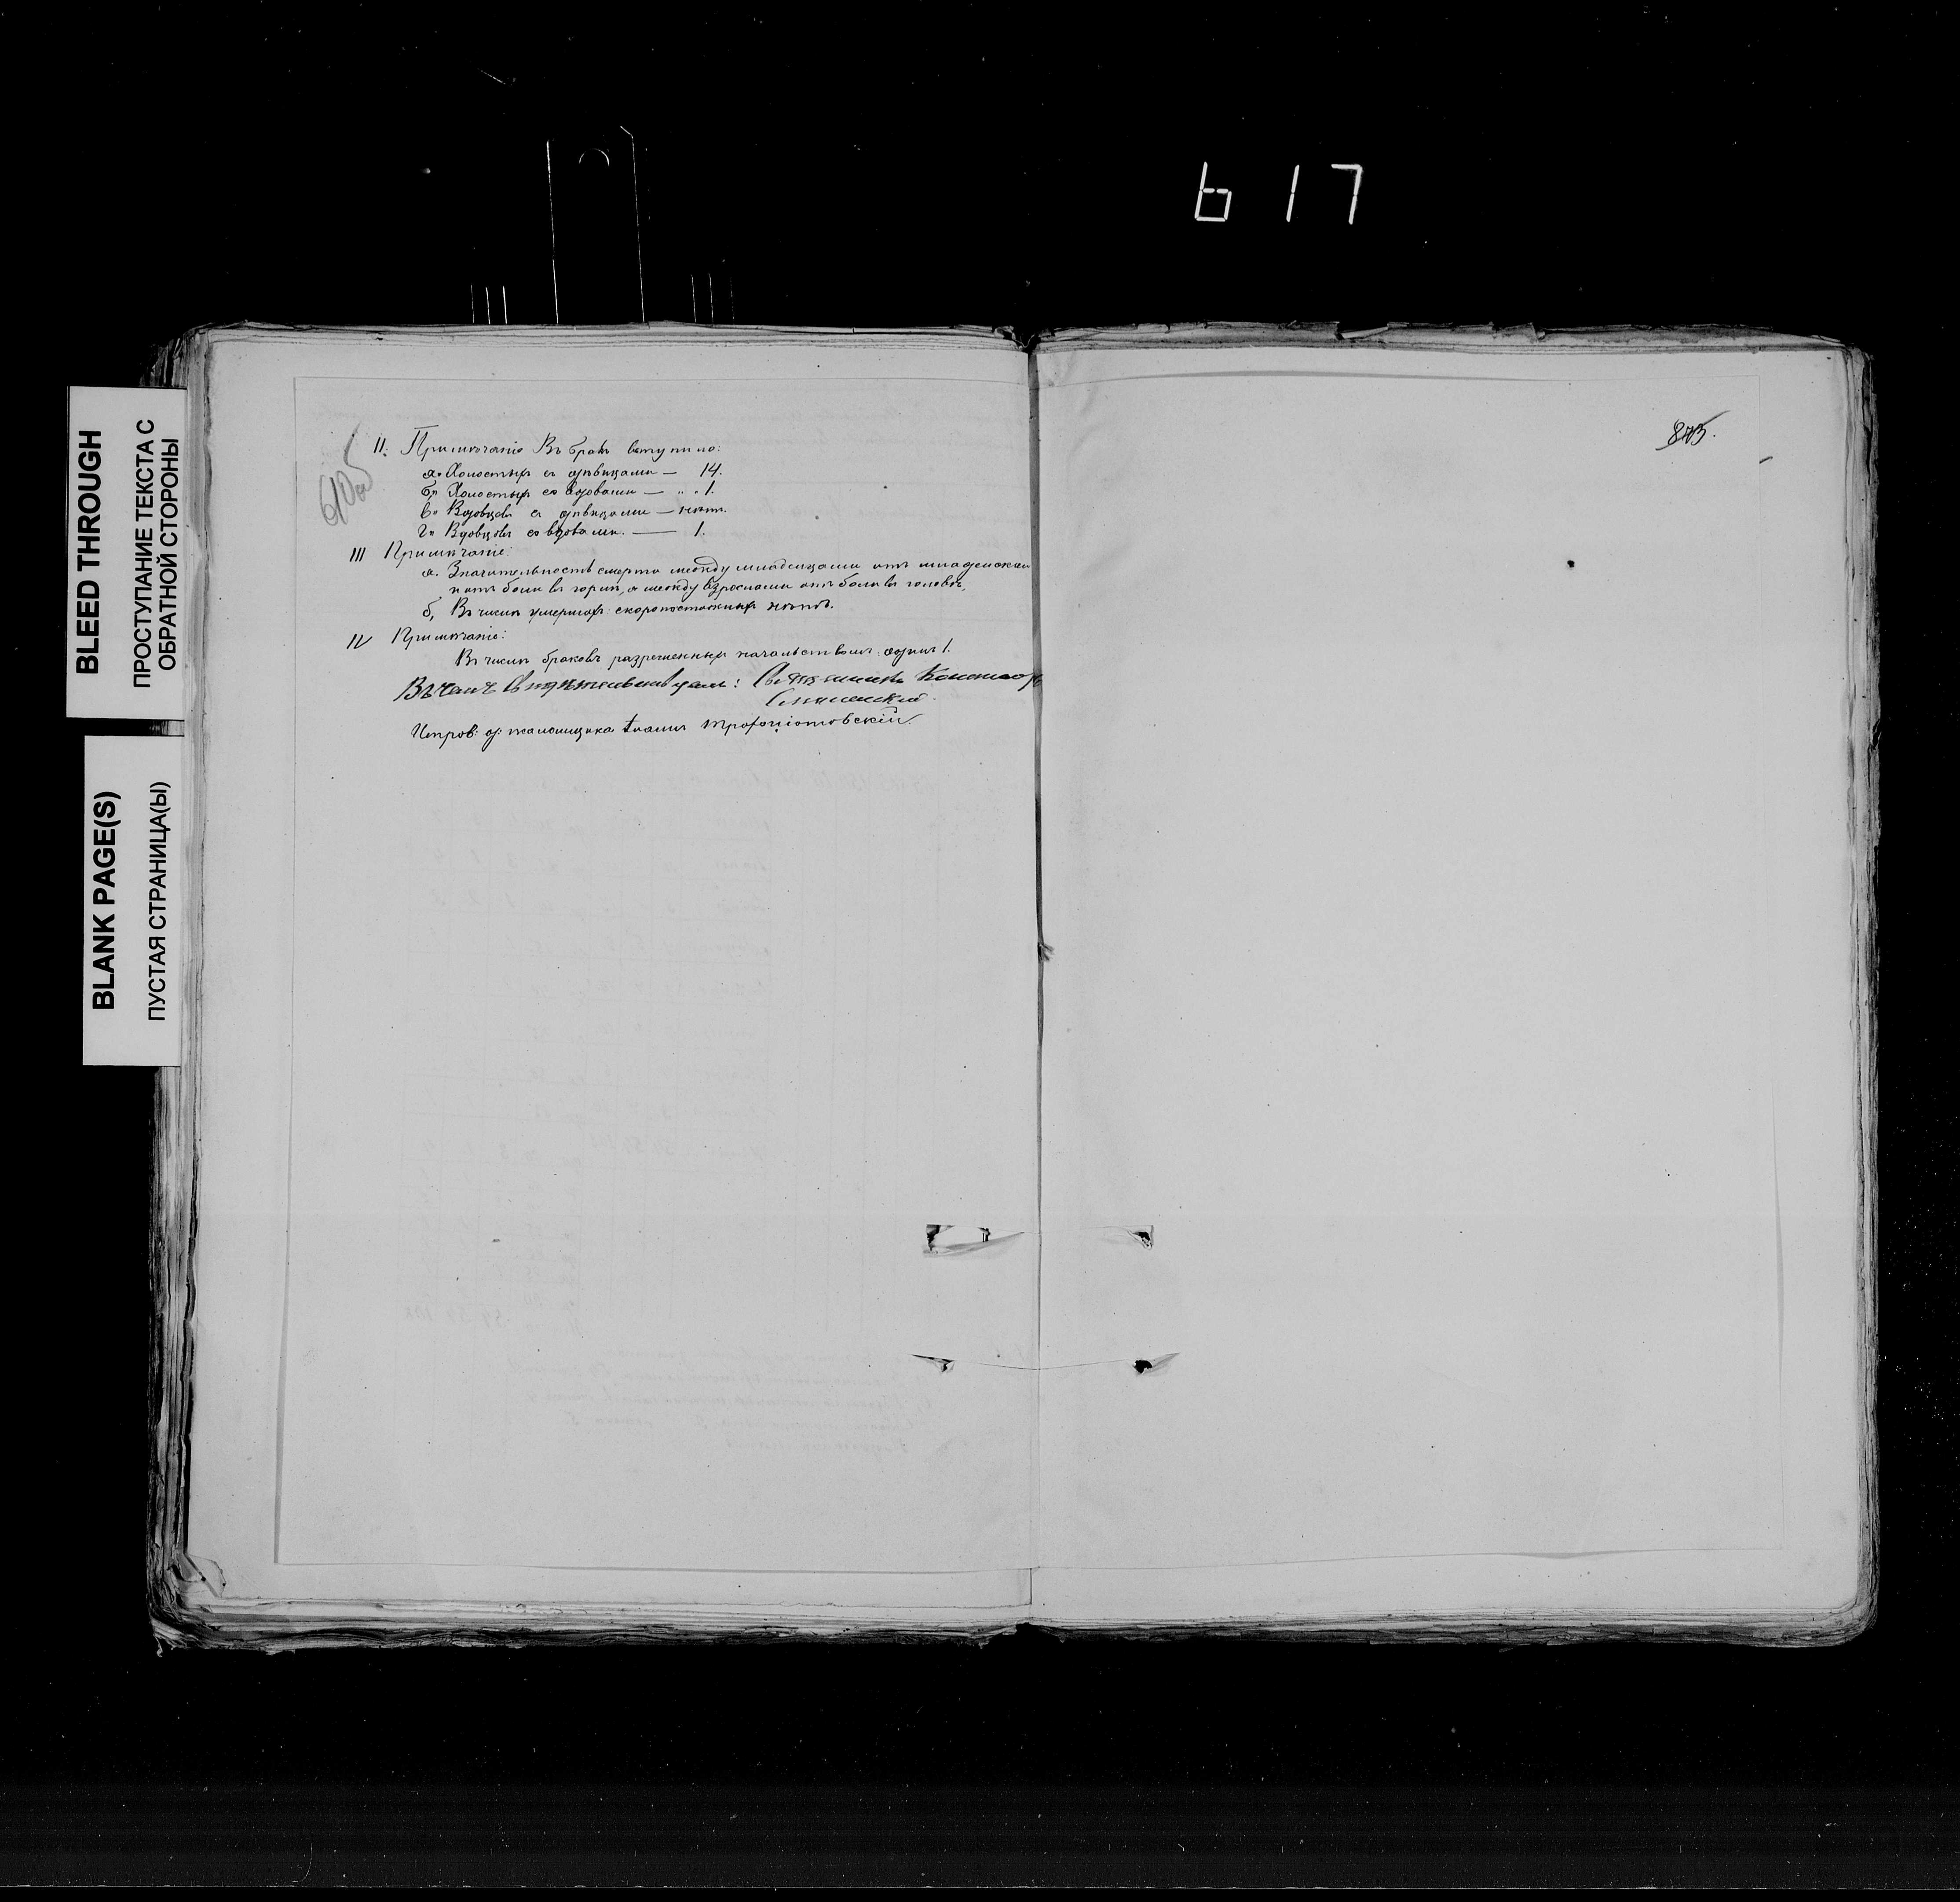 617
BLEED THROUGH
ПРОСТУПАНИЕ ТЕКСТА С
ОБРАТНОЙ СТОРОНЫ
BLANK PAGE(S)
ПУСТАЯ СТРАНИЦА(Ы)
II. Примѣчаніе Въ бракъ вступило:
а. Холостыхъ съ дѣвицами — 14.
б. Холостыхъ со вдовами — " " 1.
в. Вдовцевъ съ дѣвицами — нѣтъ.
г. Вдовцовъ со вдовами. — 1.
III Примѣчаніе:
а. Значительность смерти между младенцами отъ младенской
и отъ боли въ горлѣ, а между взрослыми отъ боли въ головѣ,
б, Въ числѣ умершихъ: скоропостижныхъ нѣтъ.
IV Примѣчаніе:
Въ числѣ браковъ разрешенныхъ начальствомъ: одинъ 1.
Въ чемъ Свидѣтельствуемъ: Священникъ
Испров: д: псаломщика Іоаннъ